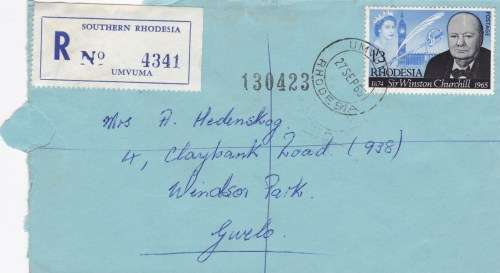 SOUTHERN RHODESIA
R No 4341
UMVUMA
130423
UM
27 SEP 65
RHODESIA
POSTAGE
/3
RHODESIA
1874 Sir Winston Churchill 1965
Mrs A. Hedenskog,
4, Claybank Road (938)
Windsor Park.
Gwelo.